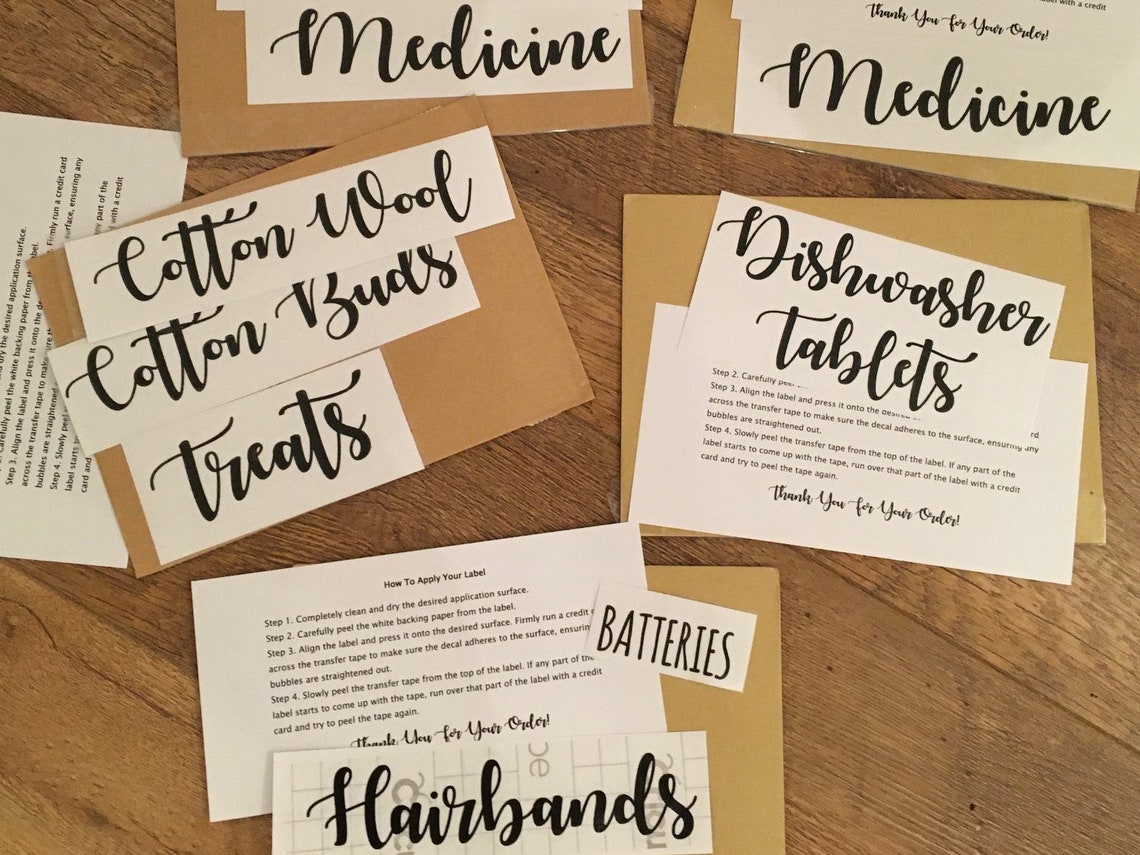 Medicine
label with a credit
Thank You for Your Order!
Medicine
Cotton Wool
Cotton Buds
treats
Firmly run a credit card
surface, ensuring any
any part of the
with a credit
dry the desired application surface.
Carefully peel the white backing paper from the label.
Step 3. Align the label and press it onto the
across the transfer tape to make sure
bubbles are straightened
Step 4. Slowly peel
label starts to
card and
Dishwasher
tablets
Step 2. Carefully peel
Step 3. Align the label and press it onto the desired card
across the transfer tape to make sure the decal adheres to the surface, ensuring any
bubbles are straightened out.
Step 4. Slowly peel the transfer tape from the top of the label. If any part of the
label starts to come up with the tape, run over that part of the label with a credit
card and try to peel the tape again.
Thank You for Your Order!
How To Apply Your Label
Step 1. Completely clean and dry the desired application surface.
Step 2. Carefully peel the white backing paper from the label.
Step 3. Align the label and press it onto the desired surface. Firmly run a credit
across the transfer tape to make sure the decal adheres to the surface, ensuring
bubbles are straightened out.
Step 4. Slowly peel the transfer tape from the top of the label. If any part of the
label starts to come up with the tape, run over that part of the label with a credit
card and try to peel the tape again.
Thank You for Your Order!
BATTERIES
Hairbands